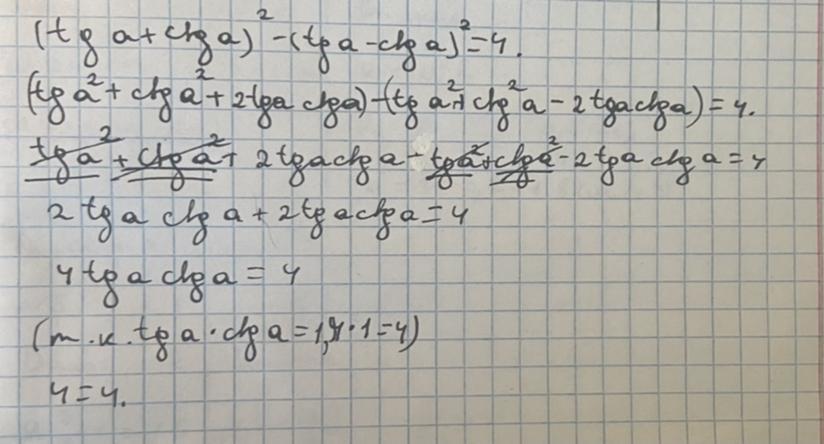 (tg a + ctg a)² - (tg a - ctg a)² = 4.
(tg a² + ctg a² + 2tga ctga) - (tg a² + ctg² a - 2tgactga) = 4.
tg a² + ctg a² + 2tgactga - tga² + ctga² - 2tga ctg a = 4
2 tg a ctg a + 2tgactga = 4
4 tg a ctg a = 4
(т.к. tg a · ctg a = 1, 4·1=4)
4 = 4.